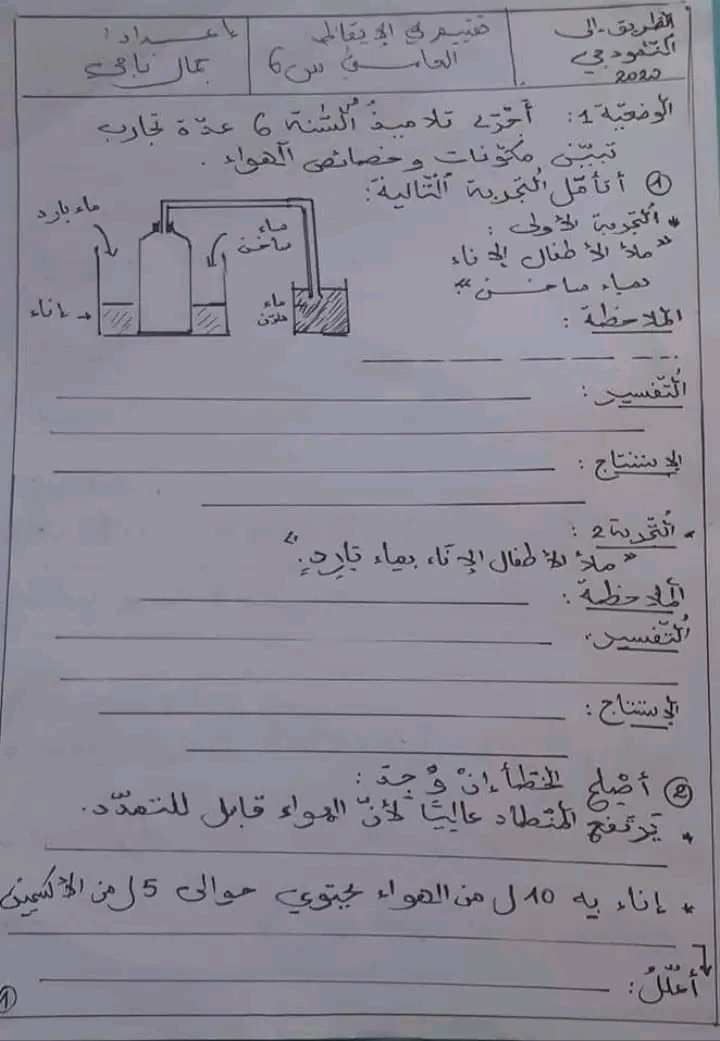 الطريق إلى
النموذجي
2020
تقييم في الإيقاظ
العلمي س 6
إعداد:
جمال ناجي
الوضعيّة 1: أجرى تلاميذُ السّنة 6 عدّة تجارب
تبيّن مكوّنات وخصائص الهواء.
① أتأمّل التّجربة التّالية:
* التّجربة الأولى:
"ملأ الأطفال الإناء
بماء ساخن"
ماء بارد
ماء
ساخن
إناء
ماء
ملوّن
الملاحظة:
التّفسير:
الإستنتاج:
* التّجربة 2:
"ملأ الأطفال الإناء بماء بَارِدٍ."
الملاحظة:
التّفسير:
الإستنتاج:
② أصْلح الخطأ إنْ وُجِدَ:
* يَرْتفع المُنْطاد عاليًا لأنّ الهواء قابل للتمدّد.
* إناء به 10 ل من الهواء يحتوي حوالى 5 ل من الأكسجين
أعلّلُ:
1